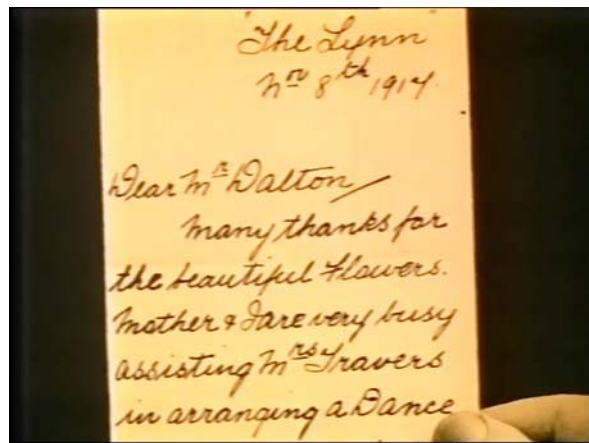 The Lynn
Nov 8th 1914.
Dear Mr Dalton
Many thanks for
the beautiful Flowers.
Mother & I are very busy
assisting Mrs Travers
in arranging a Dance